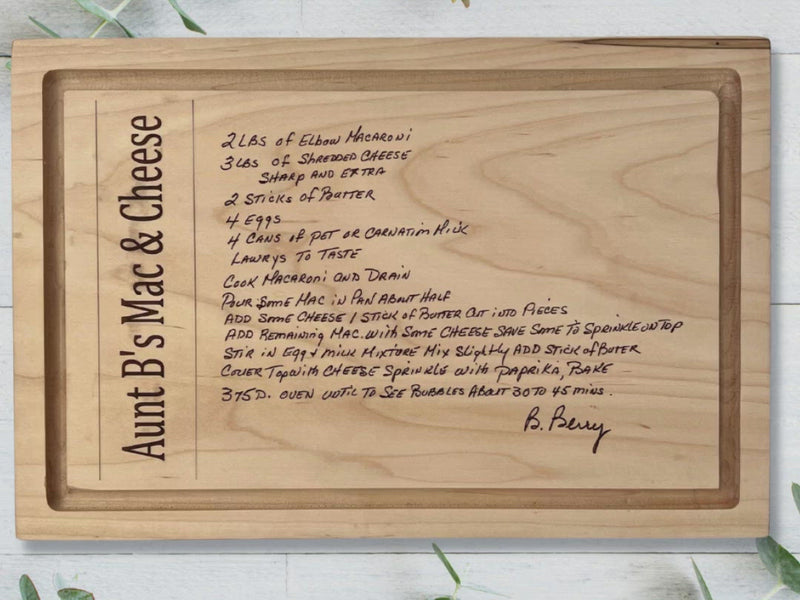 Aunt B's Mac & Cheese
2 LBS of Elbow MACARONi
3 LBS of SHREDDED CHEESE
SHARP AND EXTRA
2 STicks of BUTTER
4 Eggs
4 CANS of PET OR CARNATION MilK
LAWRYS TO TASTE
COOK MACARONi AND DRAIN
POUR SOME MAC iN PAN ABOUT HALF
ADD SOME CHEESE 1 STICK of BUTTER CUT INTO PiECES
ADD REMAINING MAC. WITH SOME CHEESE SAVE SOME TO SPRINKLE ON TOP
STIR IN Egg & MILK MIXTURE MIX SlighTly ADD STICK of BUTTER
COVER TOP WITH CHEESE SPRINKLE WITH PAPRIKA, BAKE
375 D. OVEN UNTIL TO SEE BUBBLES ABOUT 30 TO 45 MINS.
B. Berry